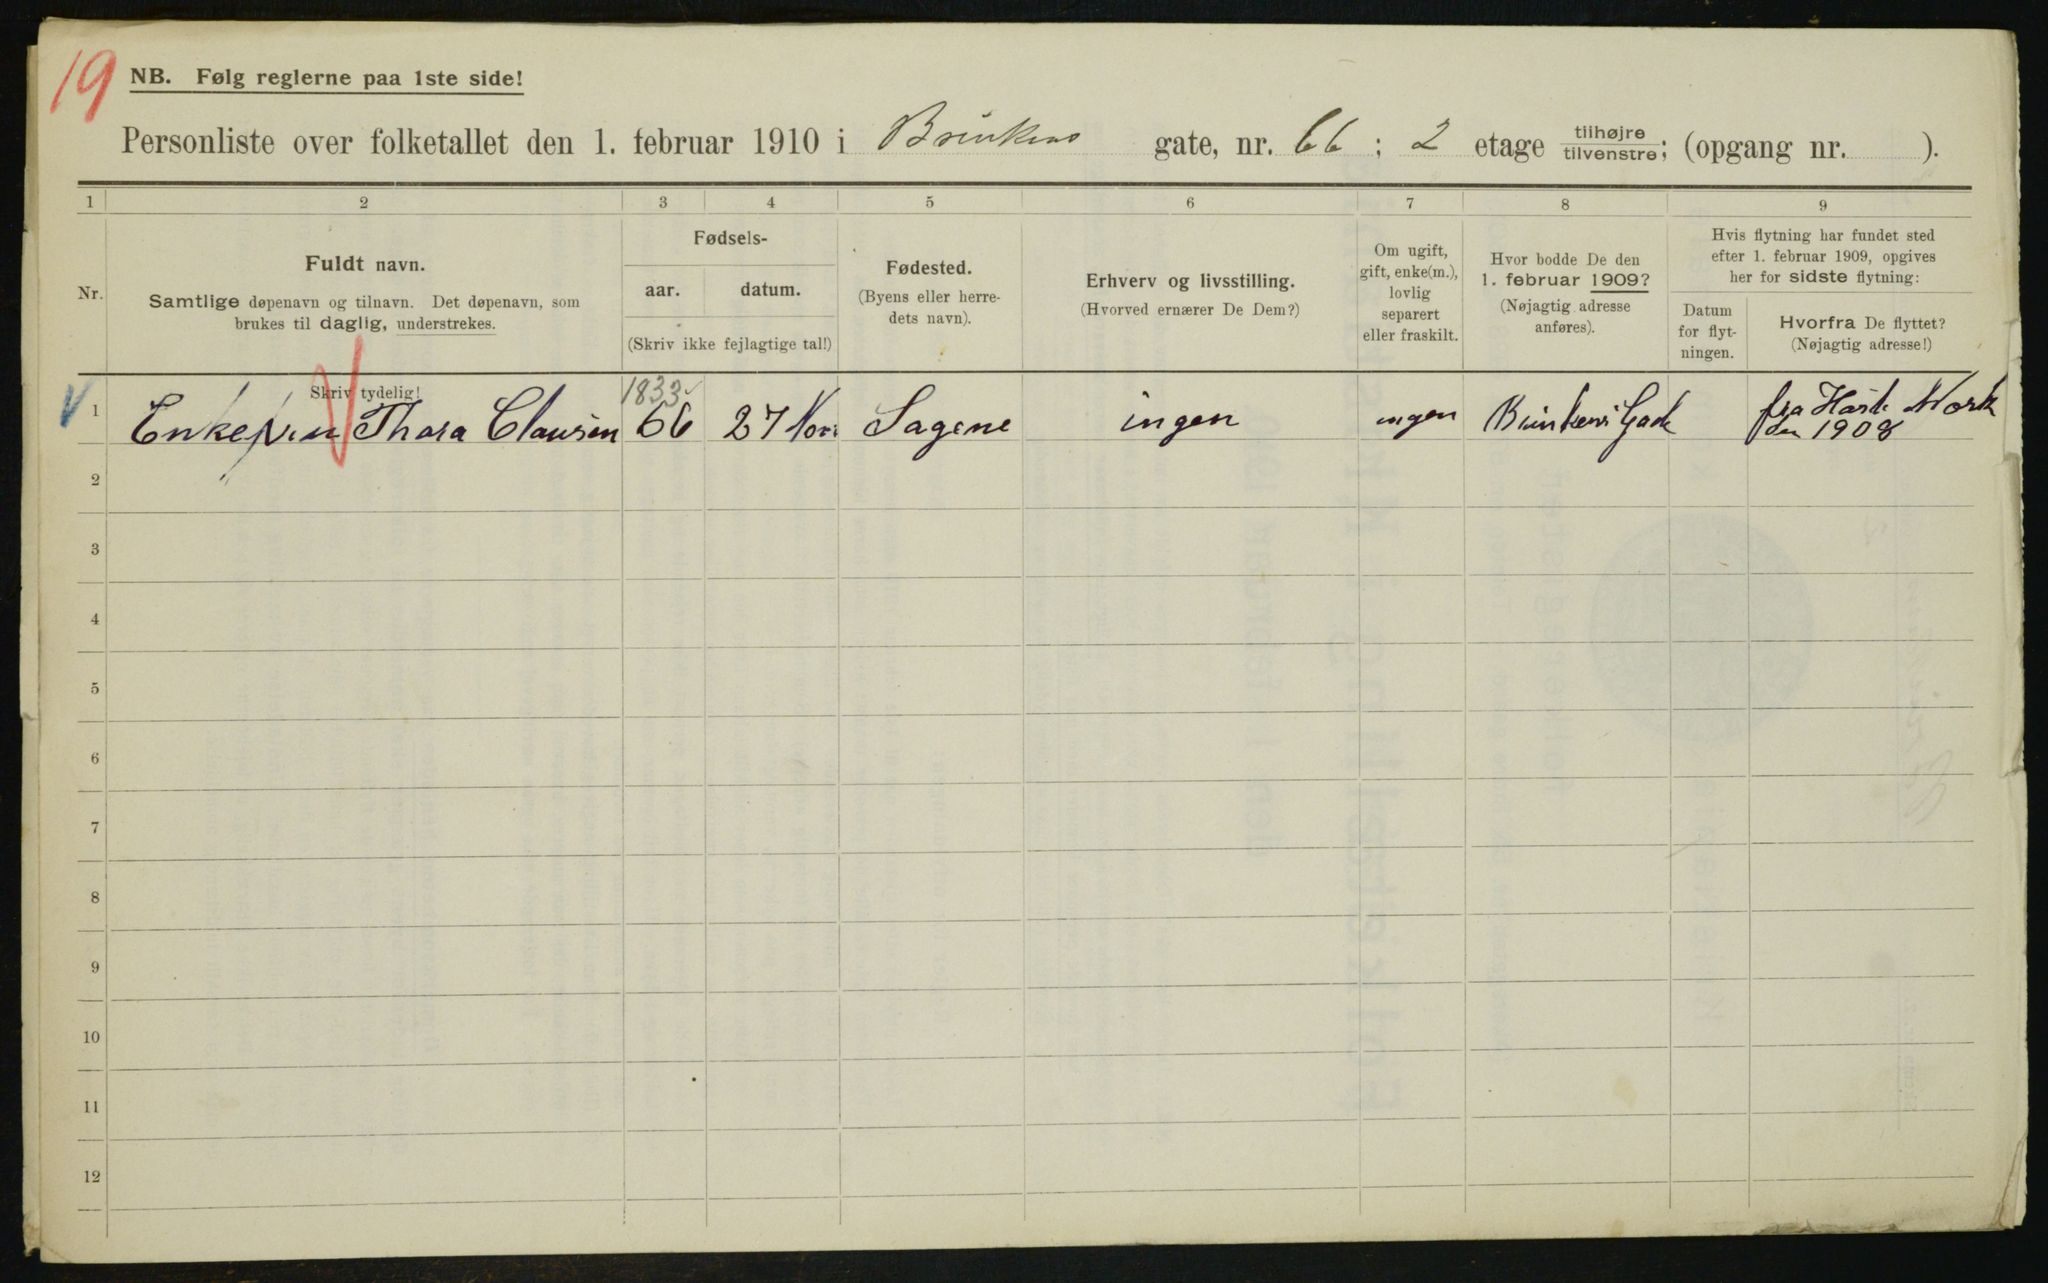 19
NB. Følg reglerne paa 1ste side!
Personliste over folketallet den 1. februar 1910 i Brinkens gate, nr. 66 ; 2 etage tilhøjre/tilvenstre; (opgang nr. ).
1 2 3 4 5 6 7 8 9
Nr.
Fuldt navn.
Samtlige døpenavn og tilnavn. Det døpenavn, som
brukes til daglig, understrekes.
Skriv tydelig!
Fødsels-
aar. datum.
(Skriv ikke fejlagtige tal!)
Fødested.
(Byens eller herre-
dets navn).
Erhverv og livsstilling.
(Hvorved ernærer De Dem?)
Om ugift,
gift, enke(m.),
lovlig
separert
eller fraskilt.
Hvor bodde De den
1. februar 1909?
(Nøjagtig adresse
anføres).
Hvis flytning har fundet sted
efter 1. februar 1909, opgives
her for sidste flytning:
Datum
for flyt-
ningen.
Hvorfra De flyttet?
(Nøjagtig adresse!)
1833
1 Thora Clausen 66 27 Nov. Sagene ingen ingen Brinkens Gade fra
1908
2
3
4
5
6
7
8
9
10
11
12